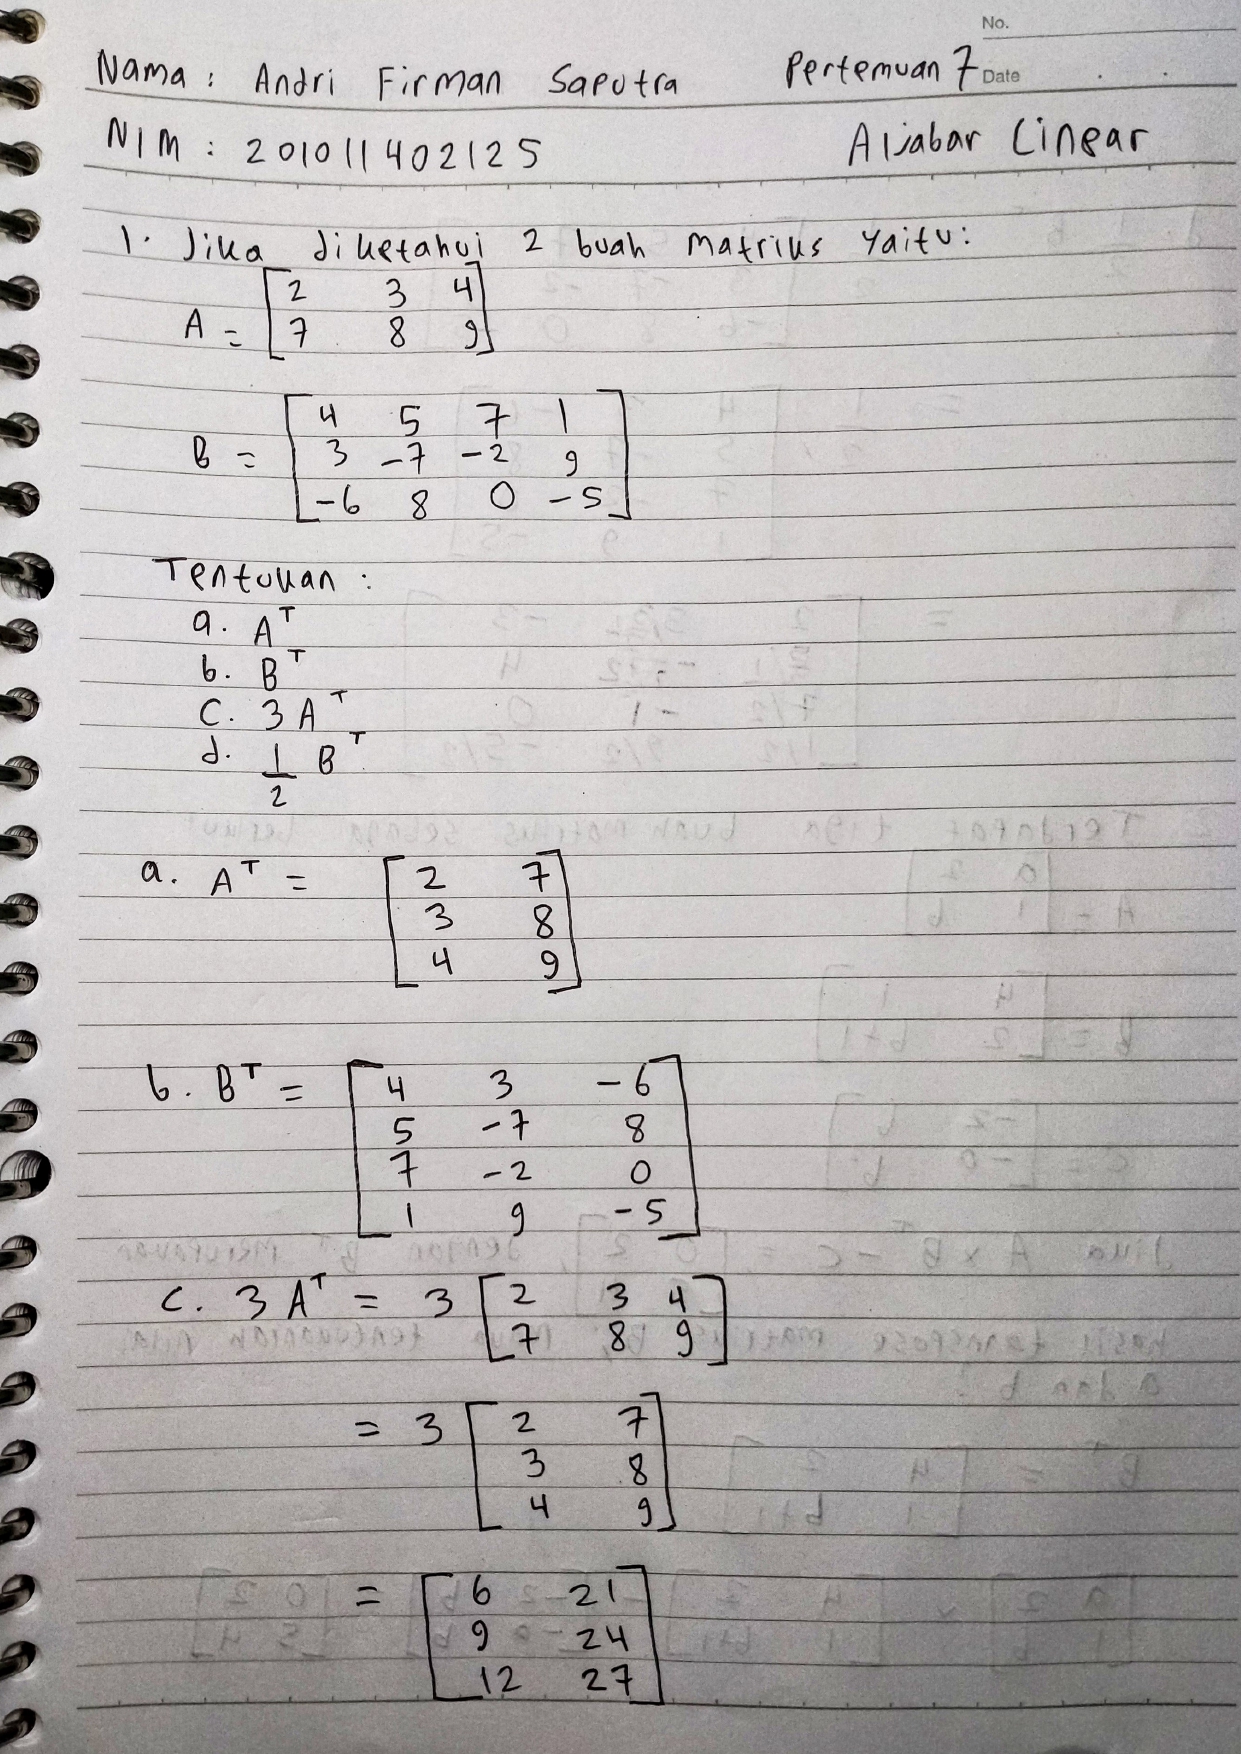 No.
Nama : Andri Firman Saputra Pertemuan 7 Date
NIM : 201011402125 Aljabar Linear
1. Jika diketahui 2 buah matriks yaitu:
2 3 4
A = 7 8 9
4 5 7 1
B = 3 -7 -2 9
-6 8 0 -5
Tentukan :
a. A^T
b. B^T
c. 3 A^T
d. 1/2 B^T
a. A^T = 2 7
3 8
4 9
b. B^T = 4 3 -6
5 -7 8
7 -2 0
1 9 -5
c. 3 A^T = 3 [2 3 4]
[7 8 9]
= 3 [2 7]
[3 8]
[4 9]
= [6 21]
[9 24]
[12 27]